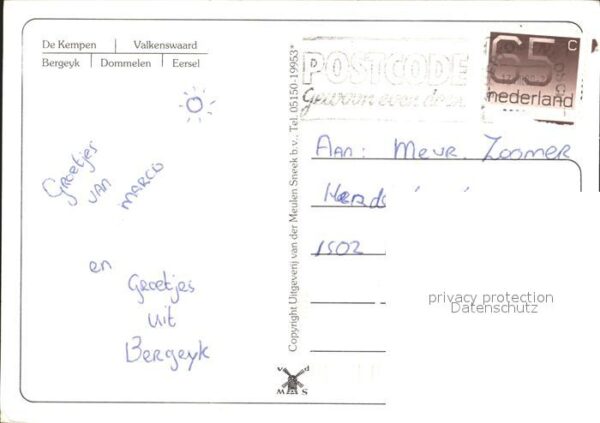 De Kempen | Valkenswaard
Bergeyk | Dommelen | Eersel
POSTCODE
Gewoon even doen
65 c
nederland
Groetjes
van
MARCO
en
Groetjes
uit
Bergeyk
Copyright Uitgeverij van der Meulen Sneek b.v., Tel. 05150-19953*
Aan: Mevr. Zoomer
1502
v d
M S
privacy protection
Datenschutz